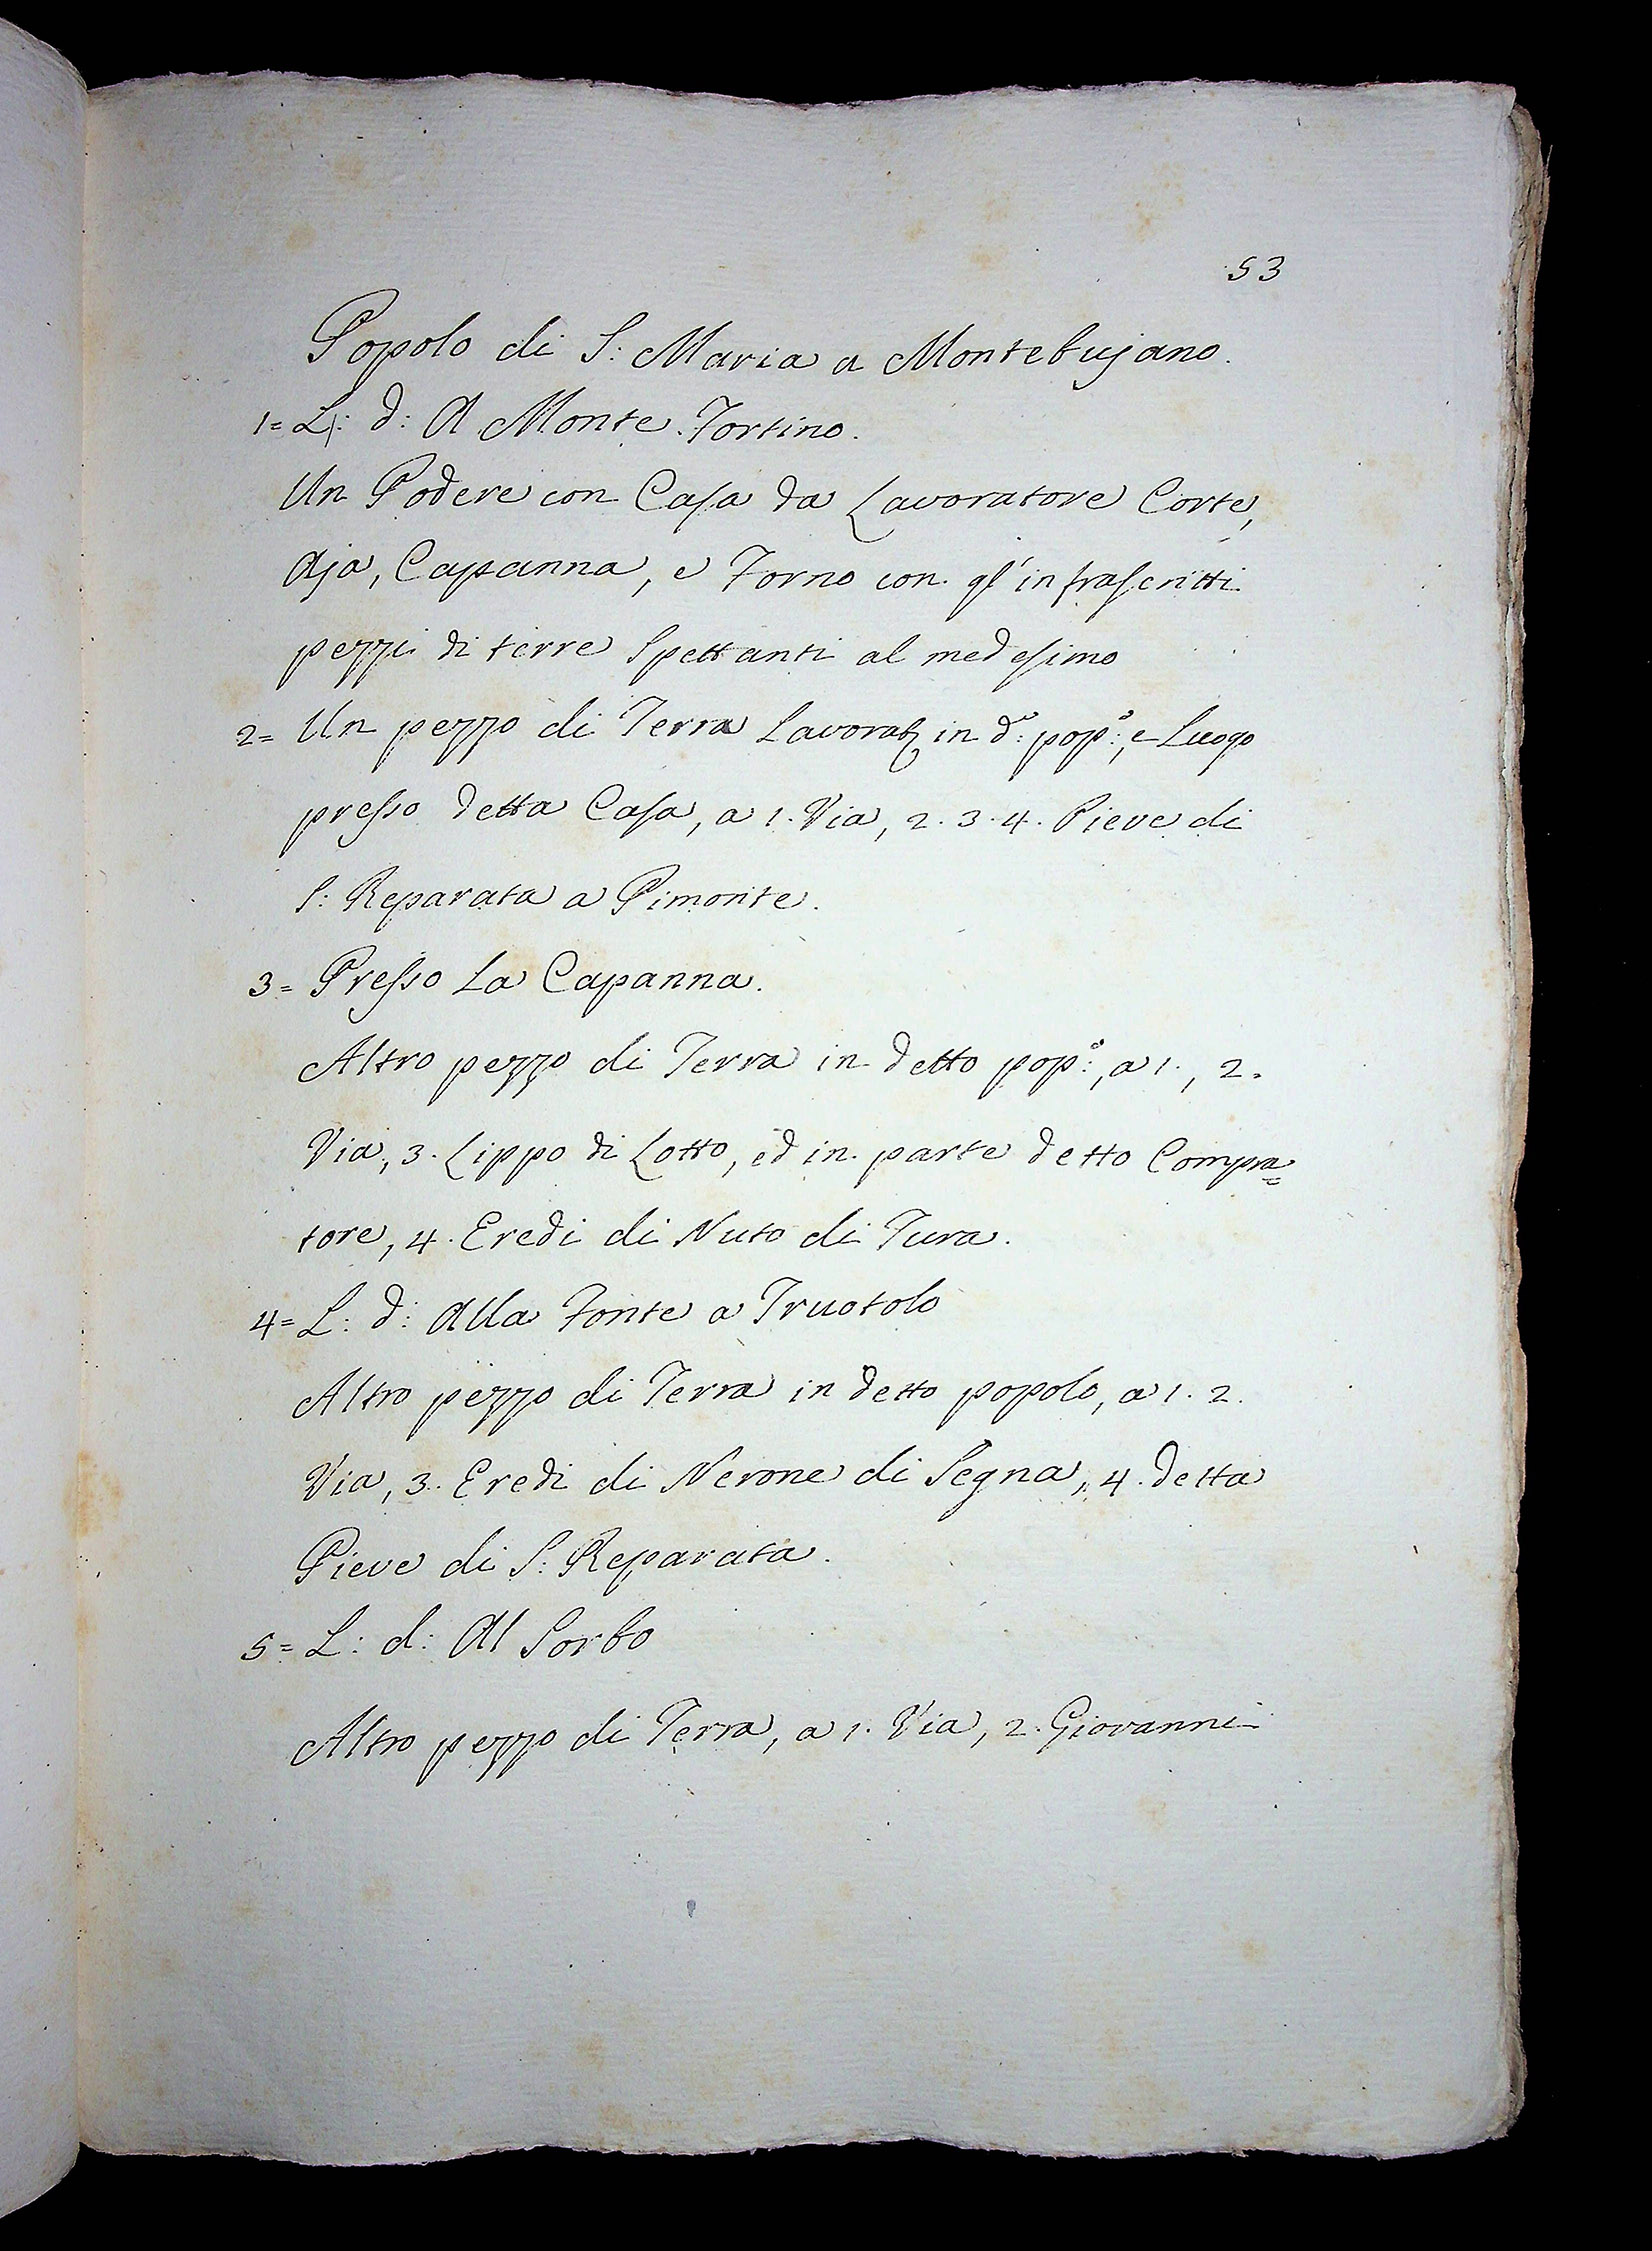 53
Popolo di S: Maria a Montebujano.
1= L: d: A Monte Fortino.
Un Podere con Casa da Lavoratore Corte,
Aja, Capanna, e Forno con gl'infrascritti
pezzi di terre Spettanti al medesimo
2= Un pezzo di Terra Lavorab in d.º pop.º, e Luogo
presso detta Casa, a 1. Via, 2. 3. 4. Pieve di
S: Reparata a Pimonte.
3= Presso La Capanna.
Altro pezzo di Terra in detto pop.º, a 1., 2.
Via, 3. Lippo di Lotto, ed in parte detto Compra=
tore, 4. Eredi di Nuto di Tura.
4= L: d: Alla Fonte a Truotolo
Altro pezzo di Terra in detto popolo, a 1. 2.
Via, 3. Eredi di Nerone di Segna, 4. detta
Pieve di S: Reparata.
5= L: d: Al Sorbo
Altro pezzo di Terra, a 1. Via, 2. Giovanni